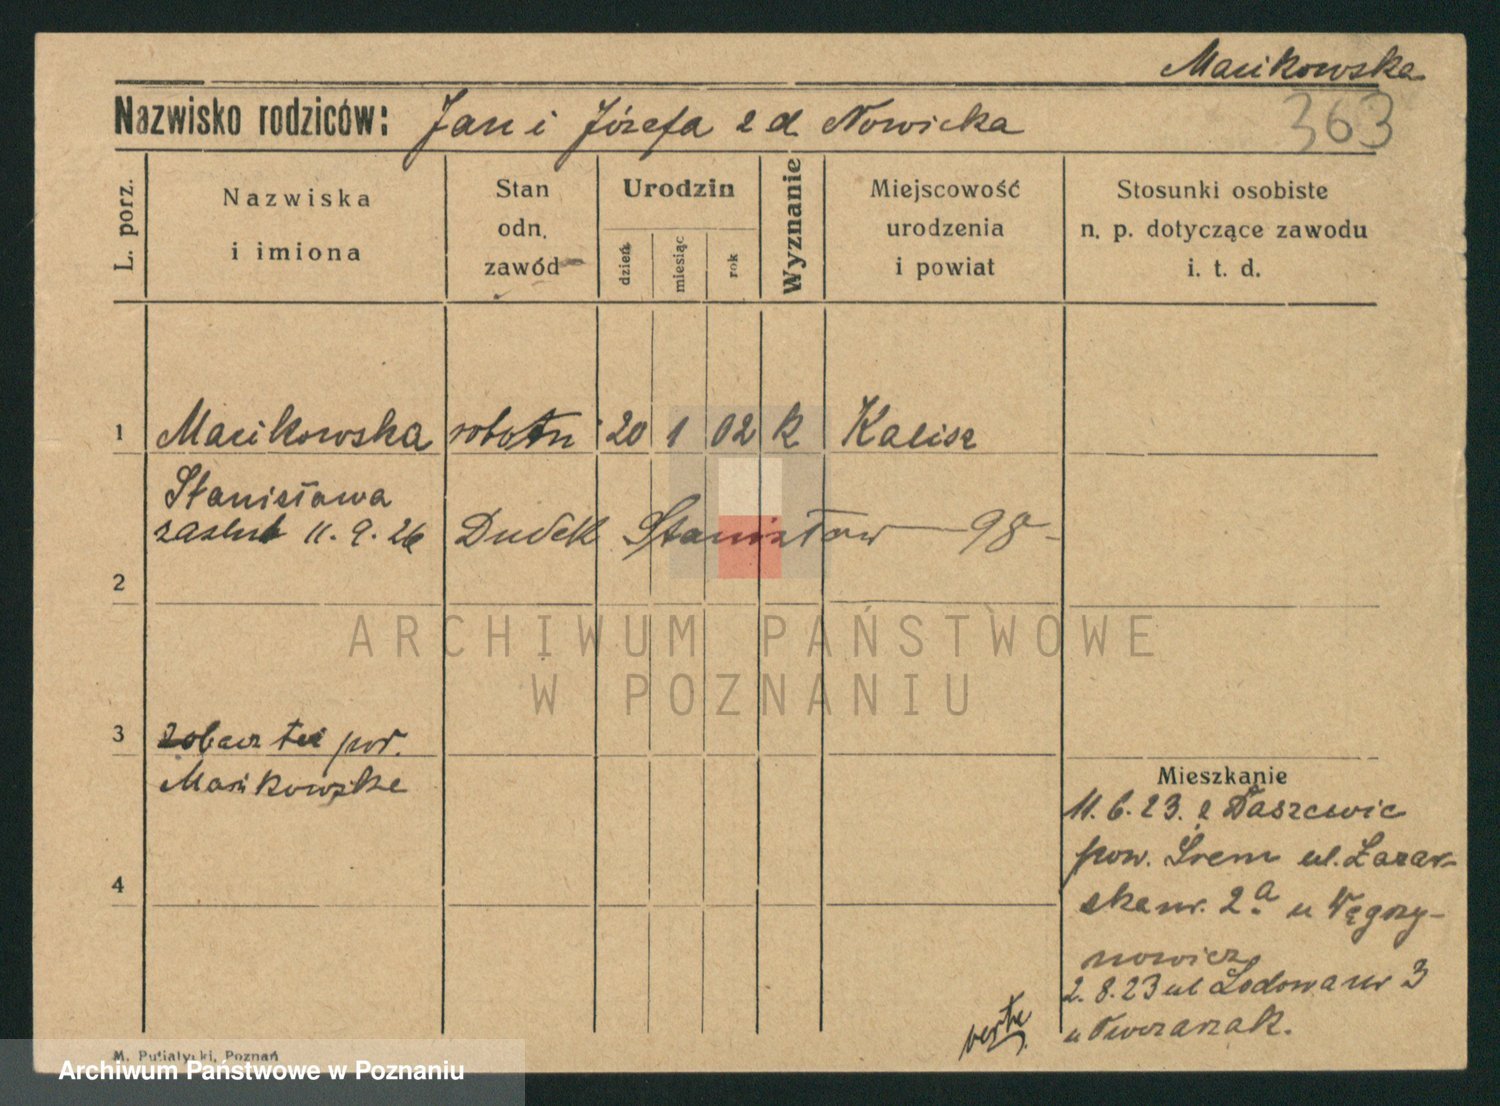 Macikowska
363
Nazwisko rodziców: Jan i Józefa z d. Nowicka
L. porz.
Nazwiska
i imiona
Stan
odn.
zawód
Urodzin
dzień
miesiąc
rok
Wyznanie
Miejscowość
urodzenia
i powiat
Stosunki osobiste
n. p. dotyczące zawodu
i. t. d.
1 Macikowska robotn 20 1 02 k Kalisz
Stanisława
zaślub 11. 9. 26 Dudek Stanisław — 98 -
2
ARCHIWUM PAŃSTWOWE
W POZNANIU
3 zobacz też pod.
Mankowska
Mieszkanie
11. 6. 23. z Daszewic
pow. Śrem ul. Łazar-
ska nr. 2.a u Węgrzy-
nowicz
2. 8. 23 ul Lodowa nr 3
u Owczarzak.
4
verte
M. Putiatycki, Poznań
Archiwum Państwowe w Poznaniu